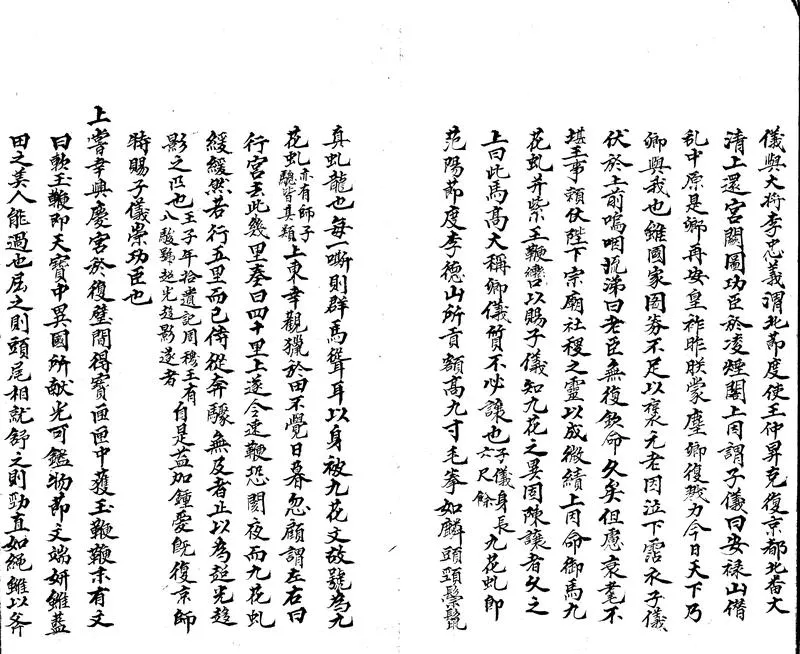 儀與大將李忠義渭北節度使王仲昇克復京都北畨大
清上還宮闕圖功臣於凌煙閣上因謂子儀曰安祿山僭
乱中原是卿再安皇祚昨朕蒙塵卿復戮力今日天下乃
卿與我也雖國家固券不足以褒元老因泣下霑衣子儀
伏於上前嗚咽流涕曰老臣無復欽命久矣但慮衰耄不
堪王事頼伏陛下宗廟社稷之靈以成微績上因命御馬九
花虬并紫玉鞭轡以賜子儀知九花之異固陳讓者久之
上曰此馬高大稱卿儀質不必讓也子儀身長六尺餘九花虬即
范陽節度李德山所貢額高九寸毛拳如麟頭頸鬃鬣
真虬龍也每一嘶則群馬聳耳以身被九花文故號為九
花虬亦有師子驄皆真類上東幸觀獵於田不覺日暮忽顧謂左右曰
行宮去此幾里奏曰四十里上遂令速鞭恐閡夜而九花虬
緩緩然若行五里而已侍從奔驟無及者止以為超光趍
影之匹也王子年拾遺記周穆王有八駿號超光趍影遂者自是益加鍾愛既復京師
特賜子儀崇功臣也
上嘗幸興慶宮於復壁間得寶匣匣中獲玉鞭鞭末有文
曰軟玉鞭即天寶中異國所獻光可鑑物節文端妍雖藍
田之美人能過也屈之則頭尾相就舒之則勁直如繩雖以斧